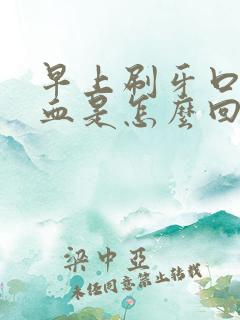 早上刷牙口
血是怎麼回
梁中亞
未经同意禁止转载